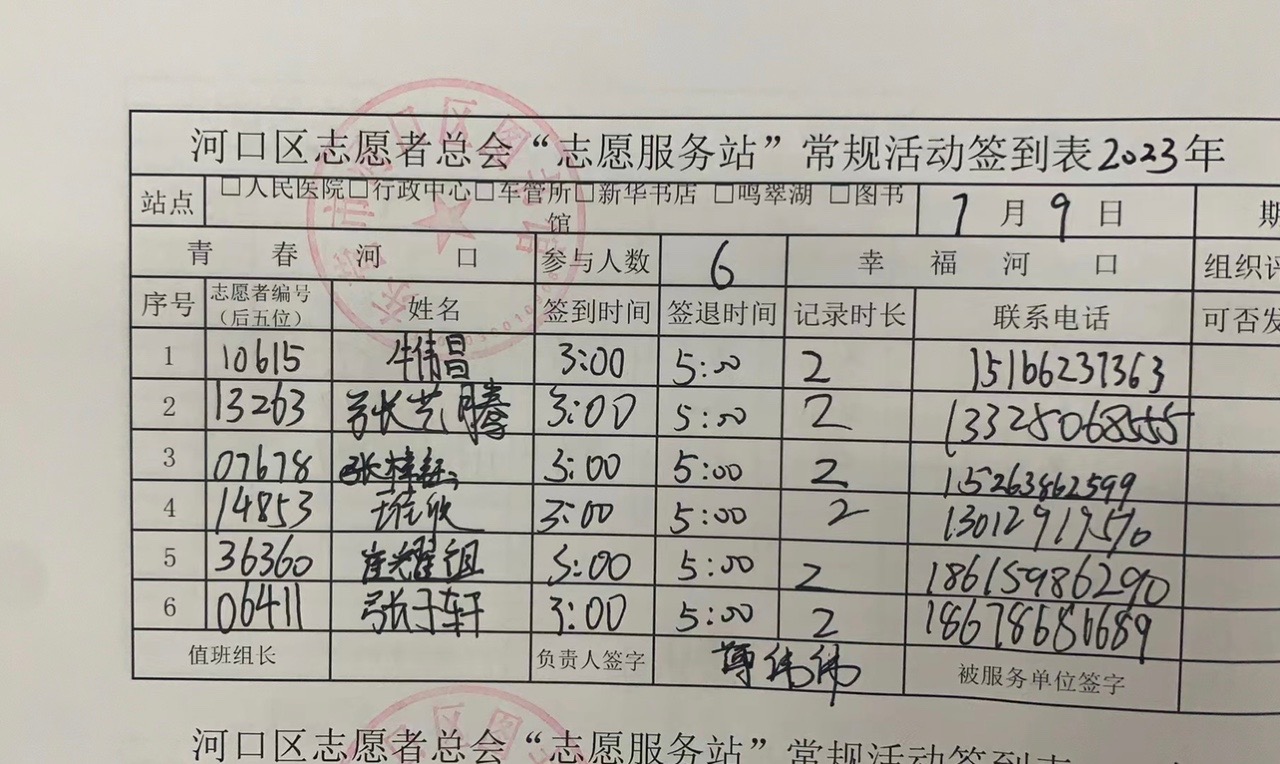 河口区志愿者总会“志愿服务站”常规活动签到表2023年
站点 □人民医院□行政中心□车管所□新华书店 □鸣翠湖 □图书馆 7月9日 期
青春河口 参与人数 6 幸福河口 组织评
序号 志愿者编号（后五位） 姓名 签到时间 签退时间 记录时长 联系电话 可否发
1 10615 牛倩昌 3:00 5:00 2 15166237363
2 13263 张艺腾 3:00 5:00 2 13325068555
3 07678 3:00 5:00 2 15263862599
4 14853 3:00 5:00 2 13012919570
5 36360 崔耀组 3:00 5:00 2 18615986290
6 06411 张子轩 3:00 5:00 2 18678686689
值班组长 负责人签字 薄伟伟 被服务单位签字
河口区志愿者总会“志愿服务站”常规活动签到表